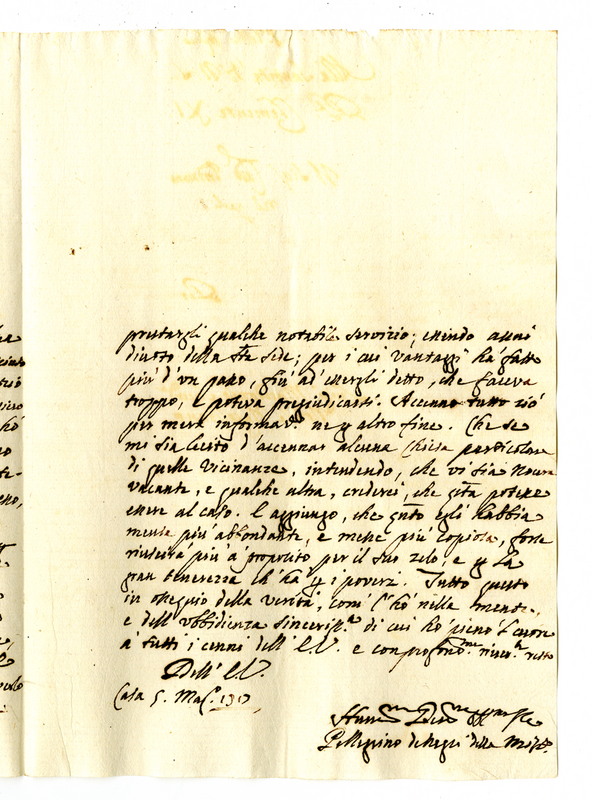 prestargli qualche notabile servizio; essendo assai
divoto della Sta Sede; per i cui vantaggi há fatto
più d'un passo, fin' ad' essergli detto, che faceva
troppo, e poteva pregiudicarsi. Accenno tutto ció
per mera informa.ne ne altro fine. Che se
mi sia lecito d'accennar alcuna Chiesa particolare
di quelle vicinanze, intendendo, che vi sia
vacante, e qualche altra, crederei, che potesse
essere al caso. E aggiungo, che qnto egli habbia
messe più abbondante, e messe più copiosa, forse
riuscirà più a proposito per il suo zelo, e la
gran tenerezza ch'há i poveri. Tutto questo
in ossequio della verità, com' l'hó nella mente,
e dell'obbidienza di cui hó pieno il cuore
à tutti i cenni dell' E.V. e con resto
Dell' E.V.
Casa 5.
Pellegrino della